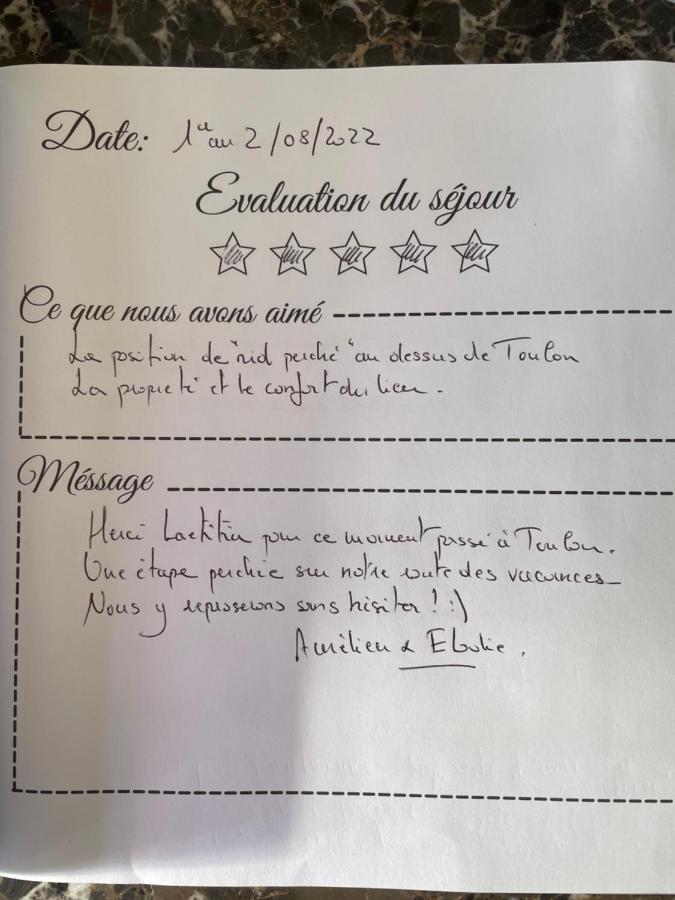 Date: 1er au 2/08/2022
Evaluation du séjour
Ce que nous avons aimé
La position de "nid perché" au dessus de Toulon
La propreté et le confort du lieu.
Méssage
Merci Laetitia pour ce moment passé à Toulon.
Une étape perchée sur notre route des vacances_
Nous y repasserons sans hésiter ! :)
Aurélien &